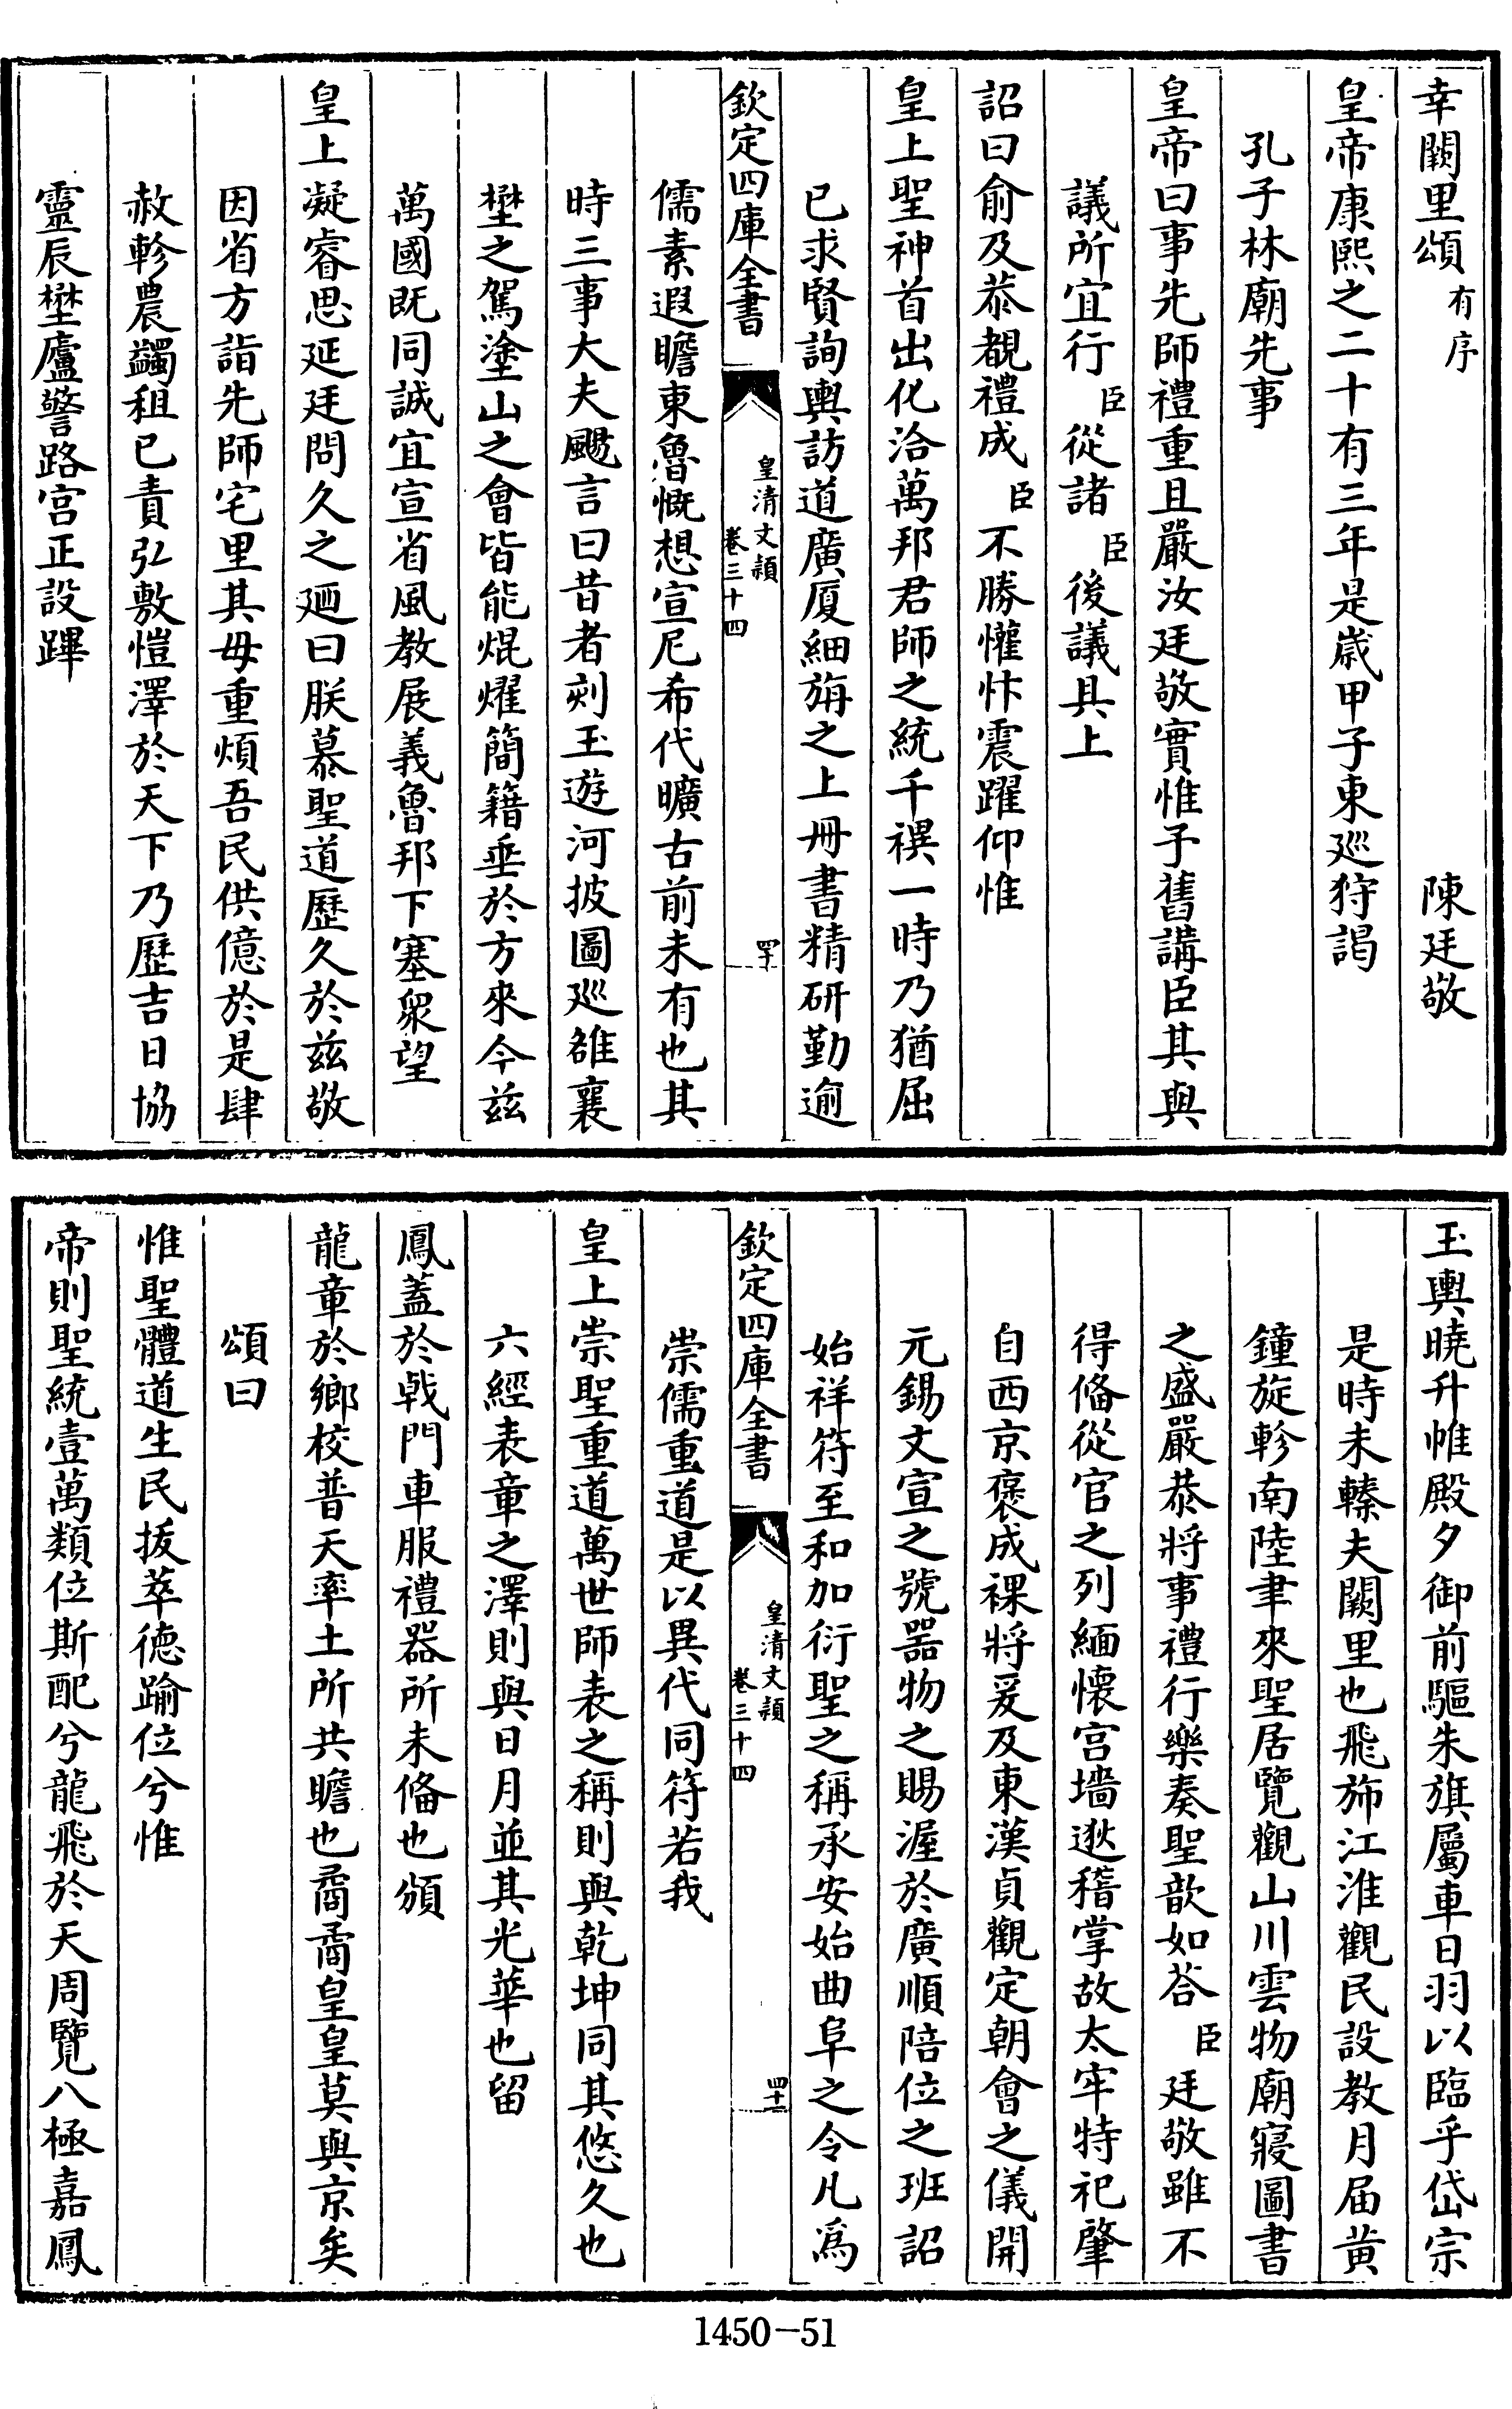 幸闕里頌有序 陳廷敬
皇帝康熙之二十有三年是歲甲子東巡狩謁
孔子林廟先事
皇帝曰事先師禮重且嚴汝廷敬實惟予舊講臣其與
議所宜行臣從諸臣後議具上
詔曰俞及恭覩禮成臣不勝懽忭震躍仰惟
皇上聖神首出化洽萬邦君師之統千禩一時乃猶屈
已求賢詢輿訪道廣厦細旃之上冊書精研勤逾
欽定四庫全書 皇清文穎 卷三十四 四十
儒素遐瞻東魯慨想宣尼希代曠古前未有也其
時三事大夫颺言曰昔者剡玉遊河披圖巡雒襄
埜之駕塗山之會皆能焜燿簡籍垂於方來今兹
萬國既同誠宜宣省風教展義魯邦下塞衆望
皇上凝睿思延廷問久之廼曰朕慕聖道歷久於兹敬
因省方詣先師宅里其毋重煩吾民供億於是肆
赦軫農蠲租已責弘敷愷澤於天下乃歷吉日協
靈辰埜廬警路宫正設蹕
玉輿曉升帷殿夕御前驅朱旗屬車日羽以臨乎岱宗
是時未轃夫闕里也飛斾江淮觀民設教月届黄
鐘旋軫南陸聿來聖居覽觀山川雲物廟寢圖書
之盛嚴恭將事禮行樂奏聖歆如荅臣廷敬雖不
得俻從官之列緬懷宫墻逖稽掌故太牢特祀肇
自西京褒成祼將爰及東漢貞觀定朝會之儀開
元錫文宣之號噐物之賜渥於廣順陪位之班詔
始祥符至和加衍聖之稱承安始曲阜之令凡爲
欽定四庫全書 皇清文穎 卷三十四 四十一
崇儒重道是以異代同符若我
皇上崇聖重道萬世師表之稱則與乾坤同其悠久也
六經表章之澤則與日月並其光華也留
鳳蓋於㦸門車服禮器所未俻也頒
龍章於鄉校普天率土所共瞻也矞矞皇皇莫與京矣
頌曰
惟聖體道生民拔萃德踰位兮惟
帝則聖統壹萬類位斯配兮龍飛於天周覽八極嘉鳳
1450-51